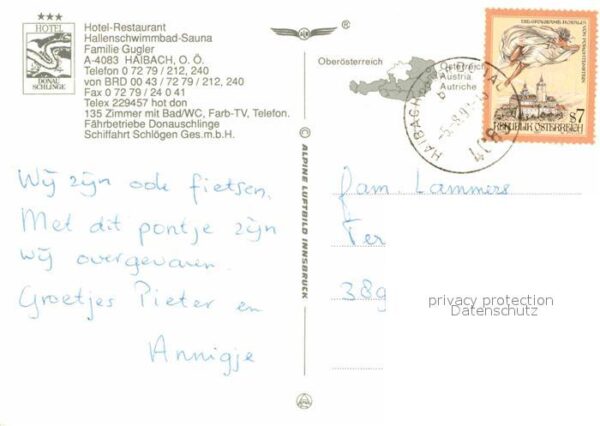 HOTEL
DONAU
SCHLINGE
Hotel-Restaurant
Hallenschwimmbad-Sauna
Familie Gugler
A-4083 HAIBACH, O. Ö.
Telefon 0 72 79 / 212, 240
von BRD 00 43 / 72 79 / 212, 240
Fax 0 72 79 / 24 0 41
Telex 229457 hot don
135 Zimmer mit Bad/WC, Farb-TV, Telefon.
Fährbetriebe Donauschlinge
Schiffahrt Schlögen Ges.m.b.H.
Wij zijn ook fietsen.
Met dit pontje zijn
wij overgevaren.
Groetjes Pieter en
Annigje
®
© ALPINE LUFTBILD INNSBRUCK
Oberösterreich
Österreich
Austria
Autriche
HAIBACH
4083
S7
REPUBLIK ÖSTERREICH
Fam. Lammers
Ter
389
privacy protection
Datenschutz